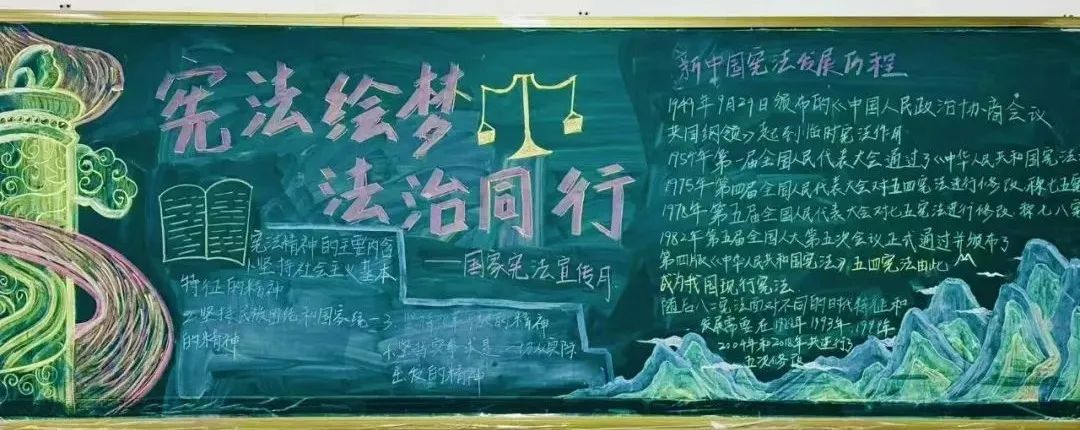 宪法绘梦
法治同行
——国家宪法宣传月
宪法精神的主要内含
1.坚持社会主义基本
特征的精神
2.坚持民族团结和国家统一3.
的精神
精神
实事求是一切从实际
出发的精神
新中国宪法发展历程
1949年9月29日颁布的《中国人民政治协商会议
共同纲领》起到临时宪法作用
1954年第一届全国人民代表大会通过了《中华人民共和国宪法
1975年第四届全国人民代表大会对五四宪法进行修改,称七五宪
1978年第五届全国人民代表大会对七五宪法进行修改 称七八宪
1982年第五届全国人大第五次会议正式通过并颁布了
第四版《中华人民共和国宪法》五四宪法由此
成为我国现行宪法
随后八二宪法面对不同的时代特征和
发展需要在1988年1993年、1999年
2004年和2018年共进行了
五次修改